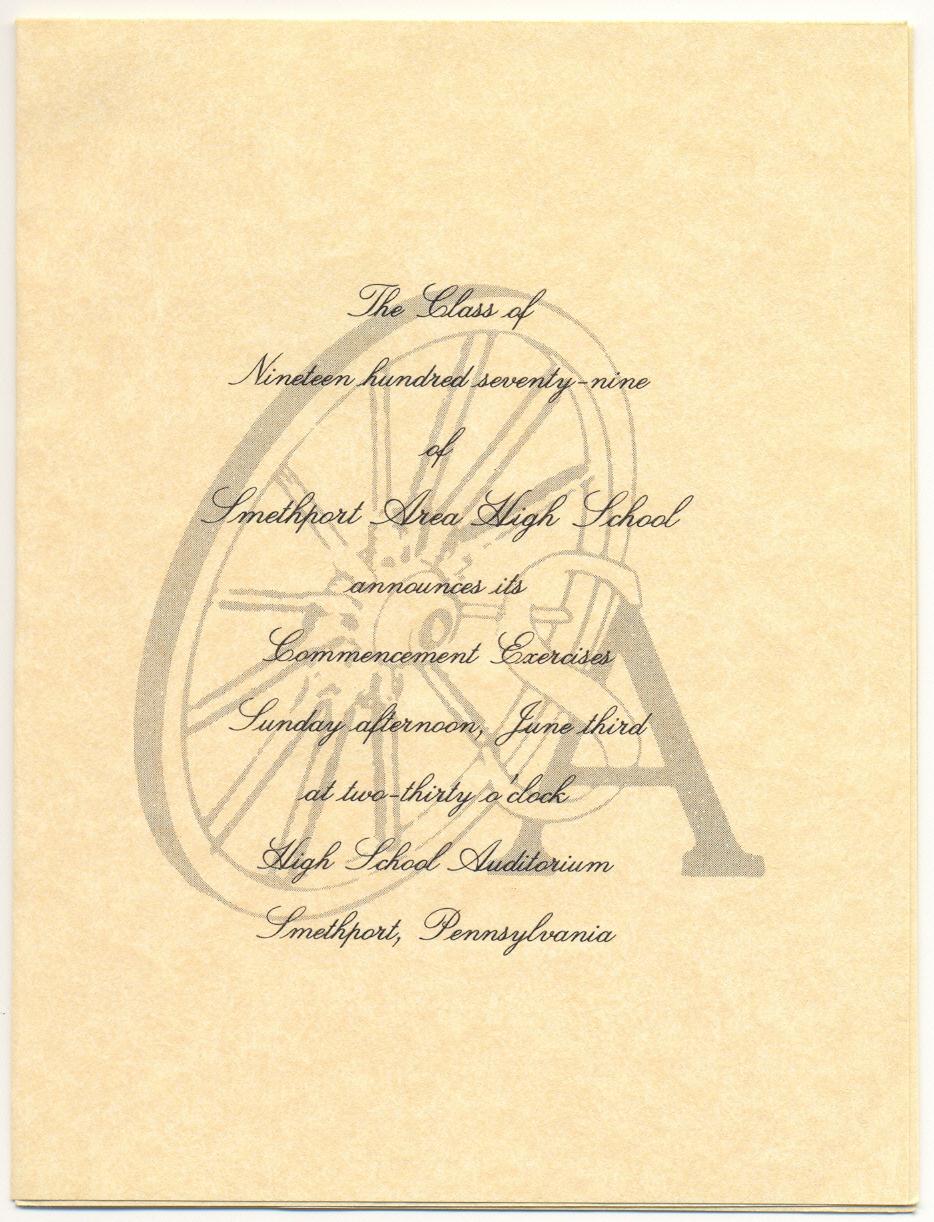 The Class of
Nineteen hundred seventy-nine
of
Smethport Area High School
announces its
Commencement Exercises
Sunday afternoon, June third
at two-thirty o'clock
High School Auditorium
Smethport, Pennsylvania
A